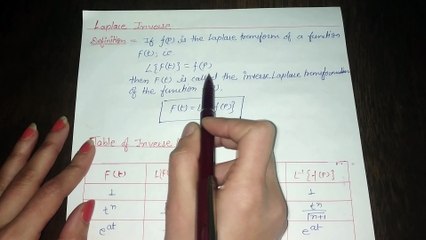 Laplace Inverse
Definition = If f(P) is the Laplace transform of a function
F(t), ie
L{F(t)} = f(P)
then F(t) is called the inverse Laplace transformation
of the function
F(t) = {f(P)}
Table of Inverse
F(t) L{F L⁻¹{f(P)}
1 1
tⁿ tⁿ/⌈n+1
e^at e^at